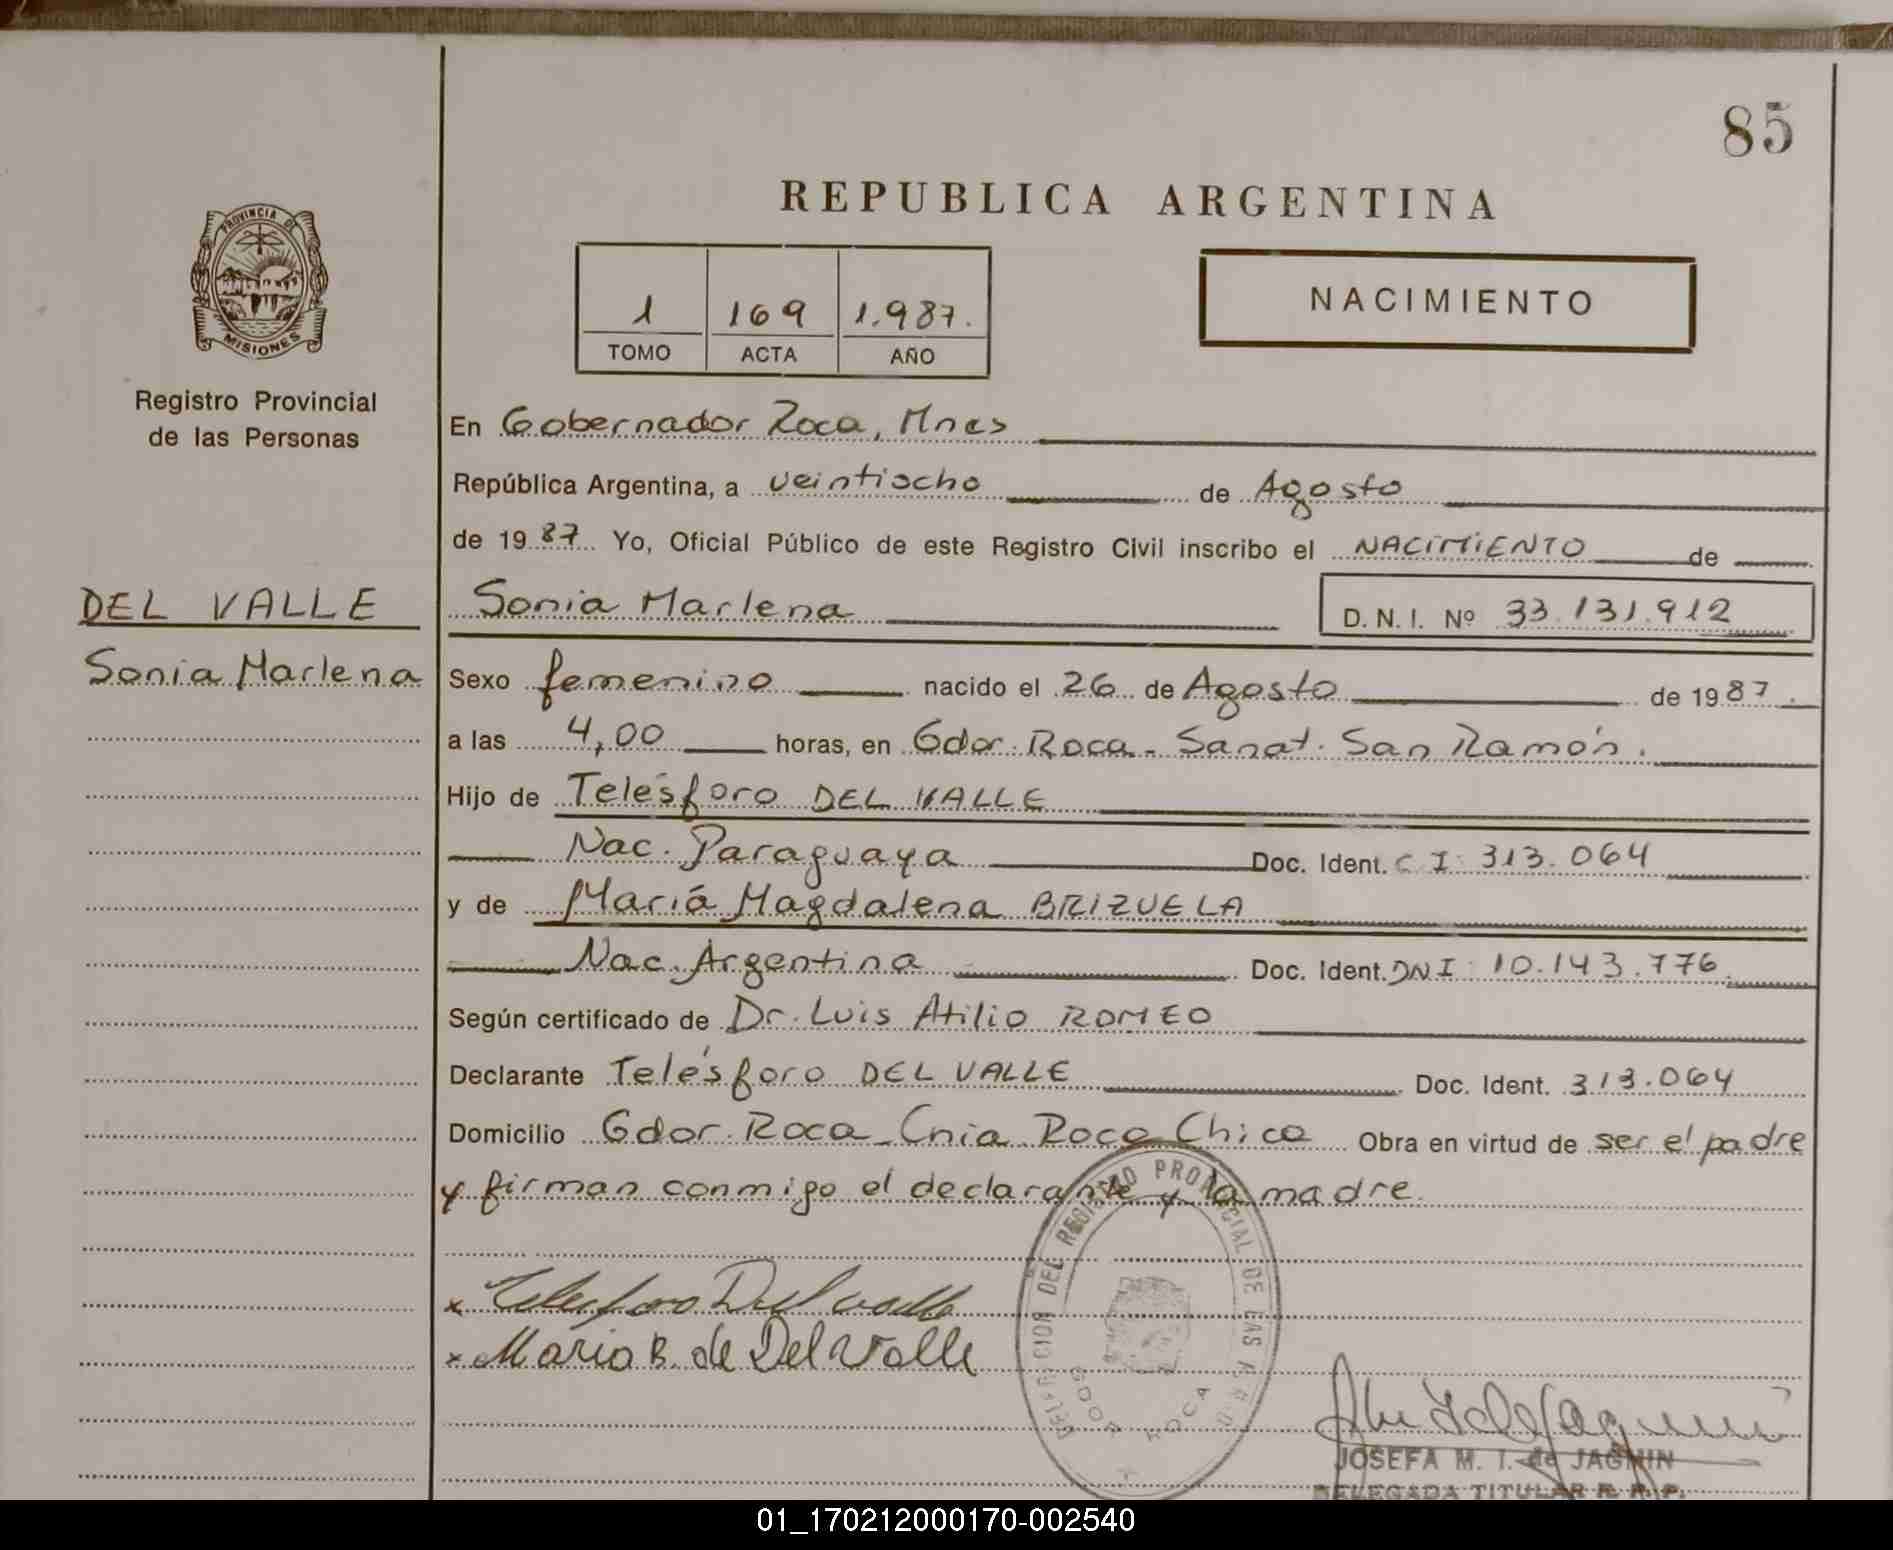 85
REPUBLICA ARGENTINA
PROVINCIA DE
MISIONES
Registro Provincial
de las Personas
1 169 1.987.
TOMO ACTA AÑO
NACIMIENTO
En Gobernador Roca, Mnes
República Argentina, a veintiocho de Agosto
de 1987 Yo, Oficial Público de este Registro Civil inscribo el NACIMIENTO de
DEL VALLE
Sonia Marlena
Sonia Marlena D.N.I. Nº 33.131.912
Sexo femenino nacido el 26 de Agosto de 1987.
a las 4,00 horas, en Gdor. Roca - Sanat. San Ramón.
Hijo de Telésforo DEL VALLE
Nac. Paraguaya Doc. Ident. C I: 313.064
y de Mariá Magdalena BRIZUELA
Nac. Argentina Doc. Ident. DNI: 10.143.776
Según certificado de Dr. Luis Atilio ROMEO
Declarante Telésforo DEL VALLE Doc. Ident. 313.064
Domicilio Gdor. Roca - Cnia Roca Chica Obra en virtud de ser el padre
y firman conmigo el declarante y la madre.
DEL REGISTRO PROVINCIAL DE LAS
GDOR ROCA
x Telesforo Del valle
x Maria B. de Del Valle
JOSEFA M. I. de JAGNIN
DELEGADA TITULAR R. P. P.
01_170212000170-002540